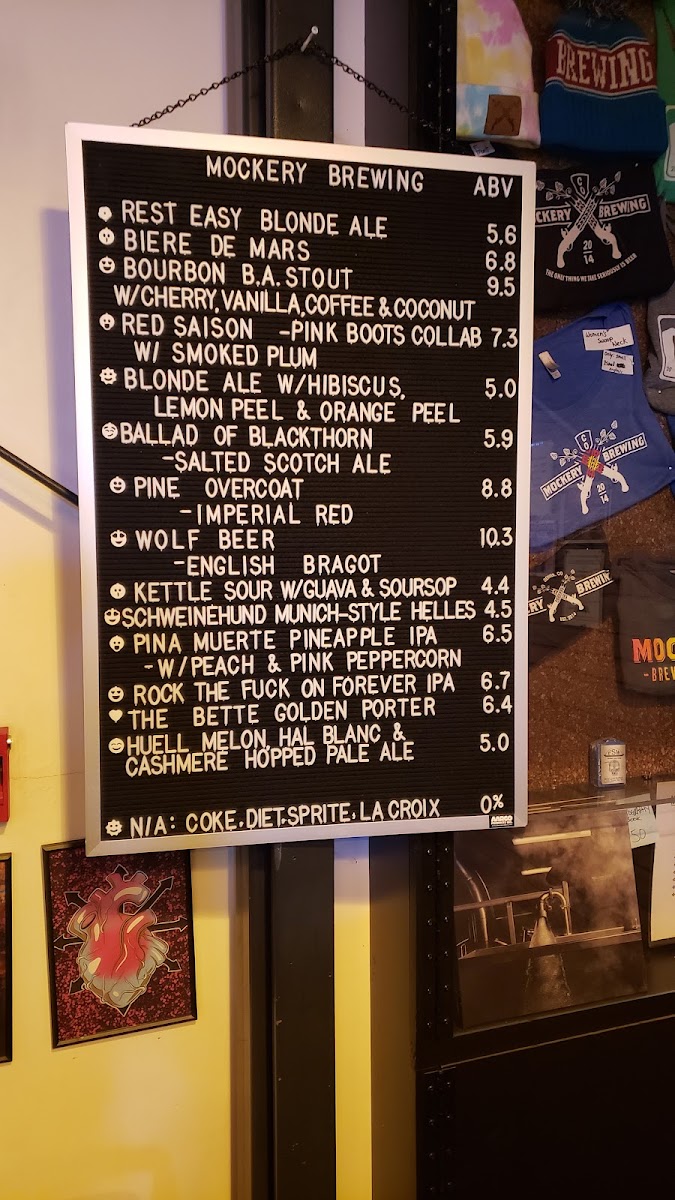 MOCKERY BREWING ABV
REST EASY BLONDE ALE 5.6
BIERE DE MARS 6.8
BOURBON B.A. STOUT 9.5
W/CHERRY, VANILLA, COFFEE & COCONUT
RED SAISON -PINK BOOTS COLLAB 7.3
W/ SMOKED PLUM
BLONDE ALE W/HIBISCUS, 5.0
LEMON PEEL & ORANGE PEEL
BALLAD OF BLACKTHORN 5.9
-SALTED SCOTCH ALE
PINE OVERCOAT 8.8
-IMPERIAL RED
WOLF BEER 10.3
-ENGLISH BRAGOT
KETTLE SOUR W/GUAVA & SOURSOP 4.4
SCHWEINEHUND MUNICH-STYLE HELLES 4.5
PINA MUERTE PINEAPPLE IPA 6.5
-W/PEACH & PINK PEPPERCORN
ROCK THE FUCK ON FOREVER IPA 6.7
THE BETTE GOLDEN PORTER 6.4
HUELL MELON, HAL BLANC & 5.0
CASHMERE HOPPED PALE ALE
N/A: COKE, DIET, SPRITE, LA CROIX 0%
BREWING
CO
MOCKERY BREWING
20
14
THE ONLY THING WE TAKE SERIOUSLY IS BEER
Women's
Scoop
Neck
CO
MOCKERY BREWING
20
14
BREWIN
MOC
-BREW
50